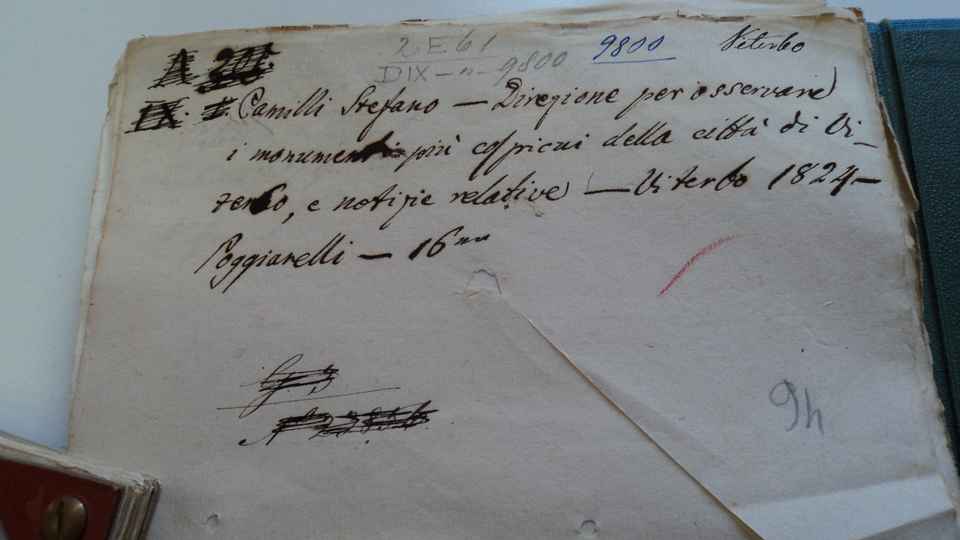 2 E 61 9800 Viterbo
DIX - n - 9800
IX. Camilli Stefano — Direzione per osservare
i monumenti più cospicui della città di Vi-
terbo, e notizie relative — Viterbo 1824 —
Poggiarelli — 16mo
94